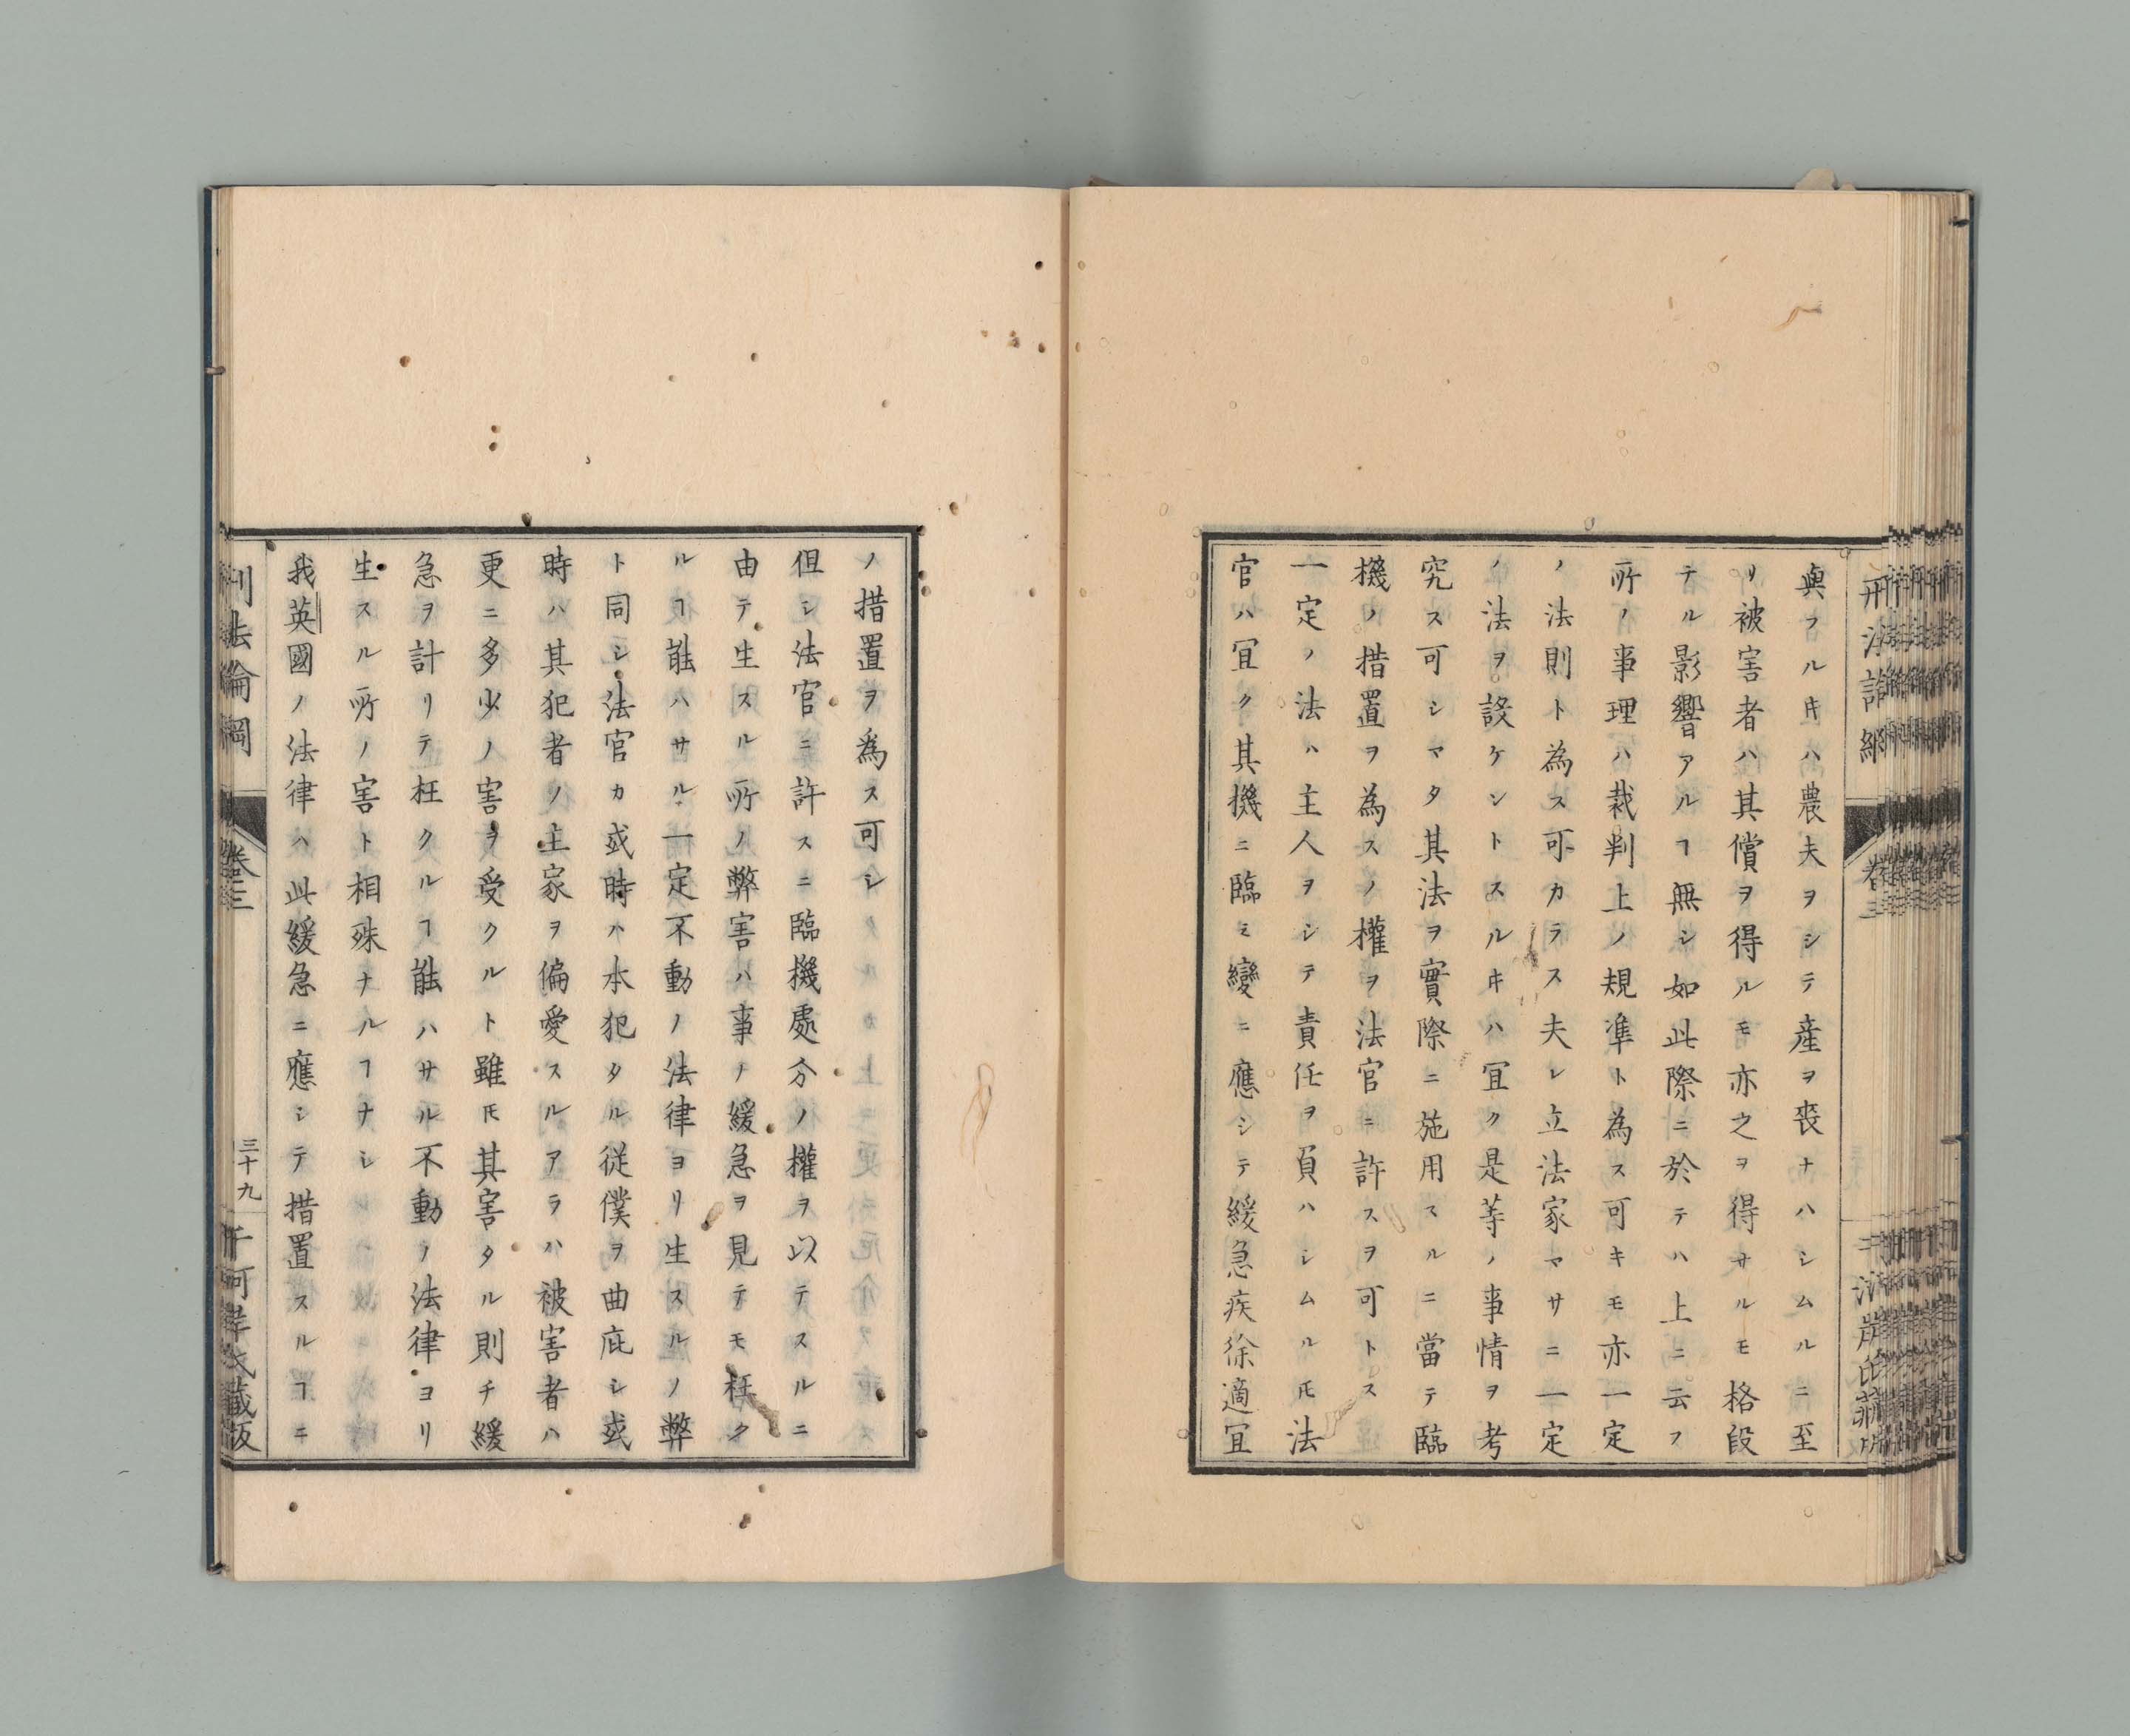 與フルキハ農夫ヲシテ産ヲ喪ナハシムルニ至
リ被害者ハ其償ヲ得ルモ亦之ヲ得サルモ格段
ナル影響アルヿ無シ如此際ニ於テハ上ニ云フ
所ノ事理ハ裁判上ノ規準ト為ス可キモ亦一定
ノ法則ト為ス可カラス夫レ立法家マサニ一定
ノ法ヲ設ケントスルキハ冝ク是等ノ事情ヲ考
究ス可シマタ其法ヲ實際ニ施用スルニ當テ臨
機ノ措置ヲ為スノ權ヲ法官ニ許スヲ可トス
一定ノ法ハ主人ヲシテ責任ヲ負ハシムルㇳモ法
官ハ冝ク其機ニ臨ミ變ニ應シテ緩急疾徐適冝
ノ措置ヲ為ス可シ
但シ法官ニ許スニ臨機處分ノ權ヲ以テスルニ
由テ生スル所ノ弊害ハ事ノ緩急ヲ見テモ枉ク
ルヿ能ハサル一定不動ノ法律ヨリ生スルノ弊
ト同シ法官カ或時ハ本犯タル従僕ヲ曲庇シ或
時ハ其犯者ノ主家ヲ偏愛スルアラハ被害者ハ
更ニ多少ノ害ヲ受クルト雖ㇳモ其害タル則チ緩
急ヲ計リテ枉クルヿ能ハサル不動ノ法律ヨリ
生スル所ノ害ト相殊ナルヿナシ
我英國ノ法律ハ此緩急ニ應シテ措置スルヿニ
刑法論綱
卷三
三十九